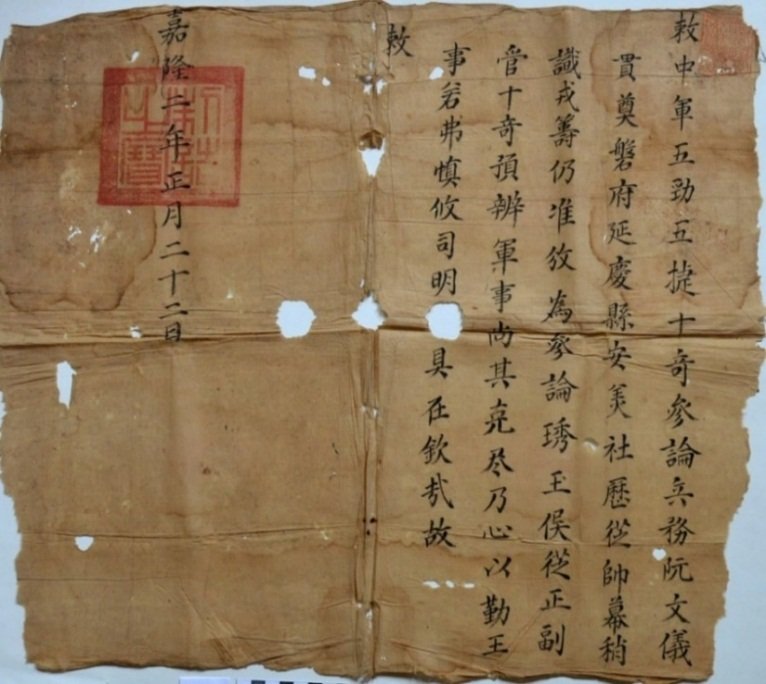 敕中軍五勁五捷十奇參論兵務阮文儀
貫奠磐府延慶縣安美社歷從帥幕稍
識戎籌仍准攸為參論琇玉侯從正副
管十奇預辦軍事尚其克尽乃心以勤王
事若弗慎攸司明具在欽哉故
敕
嘉隆二年正月二十二日